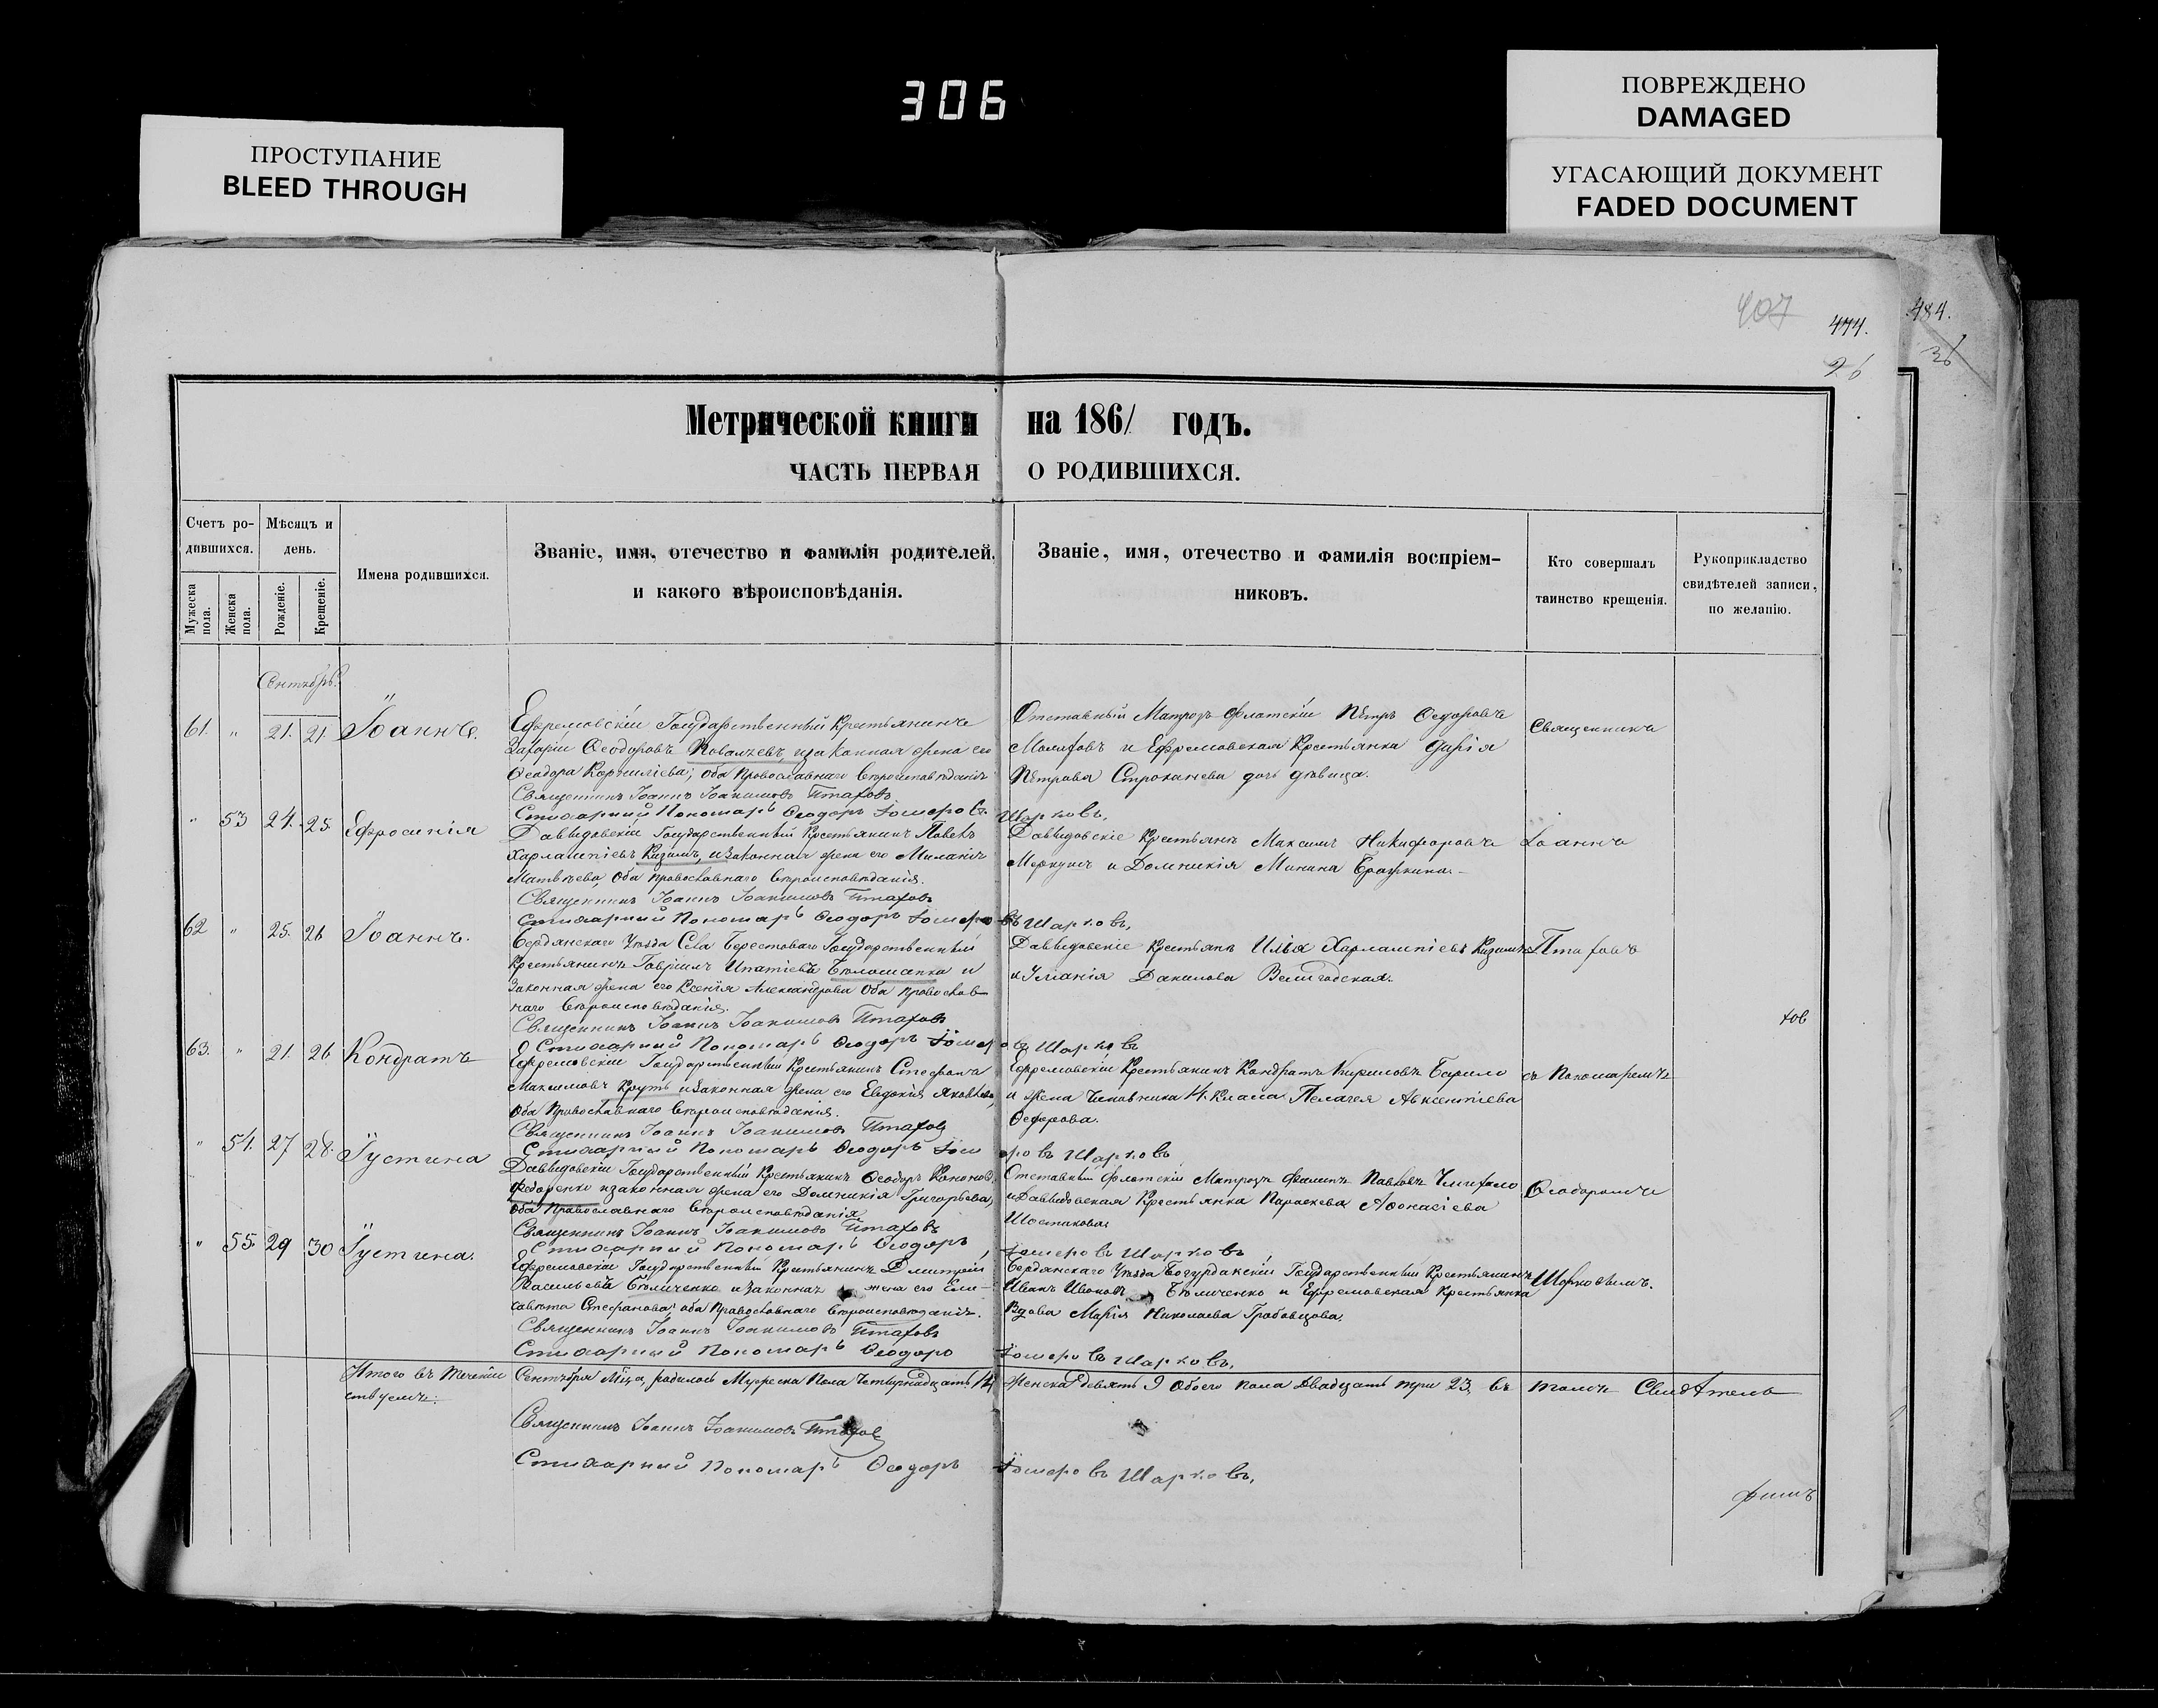 306
ПРОСТУПАНИЕ
BLEED THROUGH
ПОВРЕЖДЕНО
DAMAGED
УГАСАЮЩИЙ ДОКУМЕНТ
FADED DOCUMENT
407
474.
26
484.
36
Метрической книги на 1861 годъ.
ЧАСТЬ ПЕРВАЯ О РОДИВШИХСЯ.
Счетъ ро-
дившихся.
Мужеска пола.
Женска пола.
Мѣсяцъ и
день.
Рожденіе.
Крещеніе.
Имена родившихся.
Званіе, имя, отечество и фамилія родителей,
и какого вѣроисповѣданія.
Званіе, имя, отечество и фамилія воспріем-
никовъ.
Кто совершалъ
таинство крещенія.
Рукоприкладство
свидѣтелей записи,
по желанію.
Сентябрь.
61. " 21. 21. Іоаннъ.
Ефремовскій Государственный Крестьянинъ
Захарій Ѳеодоровъ Ковалчевъ, и законная жена его
Ѳеодора Корниліева; оба Православнаго вѣроисповѣданія
Священникъ Іоаннъ Іоакимовъ Птаховъ
Стихарный Пономарь Ѳеодоръ Гомеровъ Шарковъ.
Отставный Матрозъ флотскій Пётръ Ѳедоровъ
и Ефремовская Крестьянка Дарія
Пѣтрова дочь дѣвица.
Священникъ
" 53 24. 25. Ефросинія
Давыдовскій Государственный Крестьянинъ Павелъ
Харлампіевъ Кизимъ, и законная жена его Миланія
Матвѣева, оба православнаго вѣроисповѣданія.
Священникъ Іоаннъ Іоакимовъ Птаховъ
Стихарный Пономарь Ѳеодоръ Гомеровъ Шарковъ.
Давыдовскіе Крестьяне Максимъ Никифоровъ
и Домникія Минина
Іоаннъ
62 " 25. 26 Іоаннъ.
Бердянскаго Уѣзда Села Берестоваго Государственный
Крестьянинъ Гавріилъ Ипатіевъ Бѣлошапка и
Законная жена его Ксенія Александрова оба православ-
наго вѣроисповѣданія.
Священникъ Іоаннъ Іоакимовъ Птаховъ
Стихарный Пономарь Ѳеодоръ Гомеровъ Шарковъ
Давыдовскіе Крестьяне Илья Харлампіевъ Кизимъ
и Уліанія Данилова Велигодская.
Птаховъ
хов
63. " 21. 26 Кондратъ
Ефремовскій Государственный Крестьянинъ Стефанъ
Максимовъ Крутъ и законная жена его Евдокія Яковлева,
оба Православнаго вѣроисповѣданія.
Священникъ Іоаннъ Іоакимовъ Птаховъ
Стихарный Пономарь Ѳеодоръ Гомеровъ Шарковъ
Ефремовскій Крестьянинъ Кондратъ Кириловъ Барило
и жена Чиновника 14 Класа Пелагея Авксентіева
Ѳедорова.
съ Пономаремъ
" 54. 27 28. Іустина
Давыдовскій Государственный Крестьянинъ Ѳеодоръ Кононовъ
Федоренко и законная жена его Домникія Григорьева,
оба Православнаго вѣроисповѣданія.
Священникъ Іоаннъ Іоакимовъ Птаховъ
Стихарный Пономарь Ѳеодоръ Гомеровъ Шарковъ
Отставный флотскій Матрозъ Филипъ Павловъ
и Давыдовская Крестьянка Параскева Аѳонасіева
Шостакова.
Ѳеодоромъ
" 55. 29 30 Іустина.
Ефремовскій Государственный Крестьянинъ Дмитрій
Васильевъ Бѣличенко и законная жена его Ели-
савѣта Стефанова оба Православнаго вѣроисповѣданія.
Священникъ Іоаннъ Іоакимовъ Птаховъ
Стихарный Пономарь Ѳеодоръ Гомеровъ Шарковъ.
Бердянскаго Уѣзда Государственный Крестьянинъ
Иванъ Ивановъ Бѣличенко и Ефремовская Крестьянка
Вдова Марія Николаева Грабовцова.
Шарковымъ.
Итого въ теченіи Сентября Мца, родилось Мужеска Пола Четырнадцать 14 Женска девять 9 обоего пола двадцать три 23, въ томъ Свидѣтель
ствуемъ:
Священникъ Іоаннъ Іоакимовъ Птаховъ
Стихарный Пономарь Ѳеодоръ Гомеровъ Шарковъ.